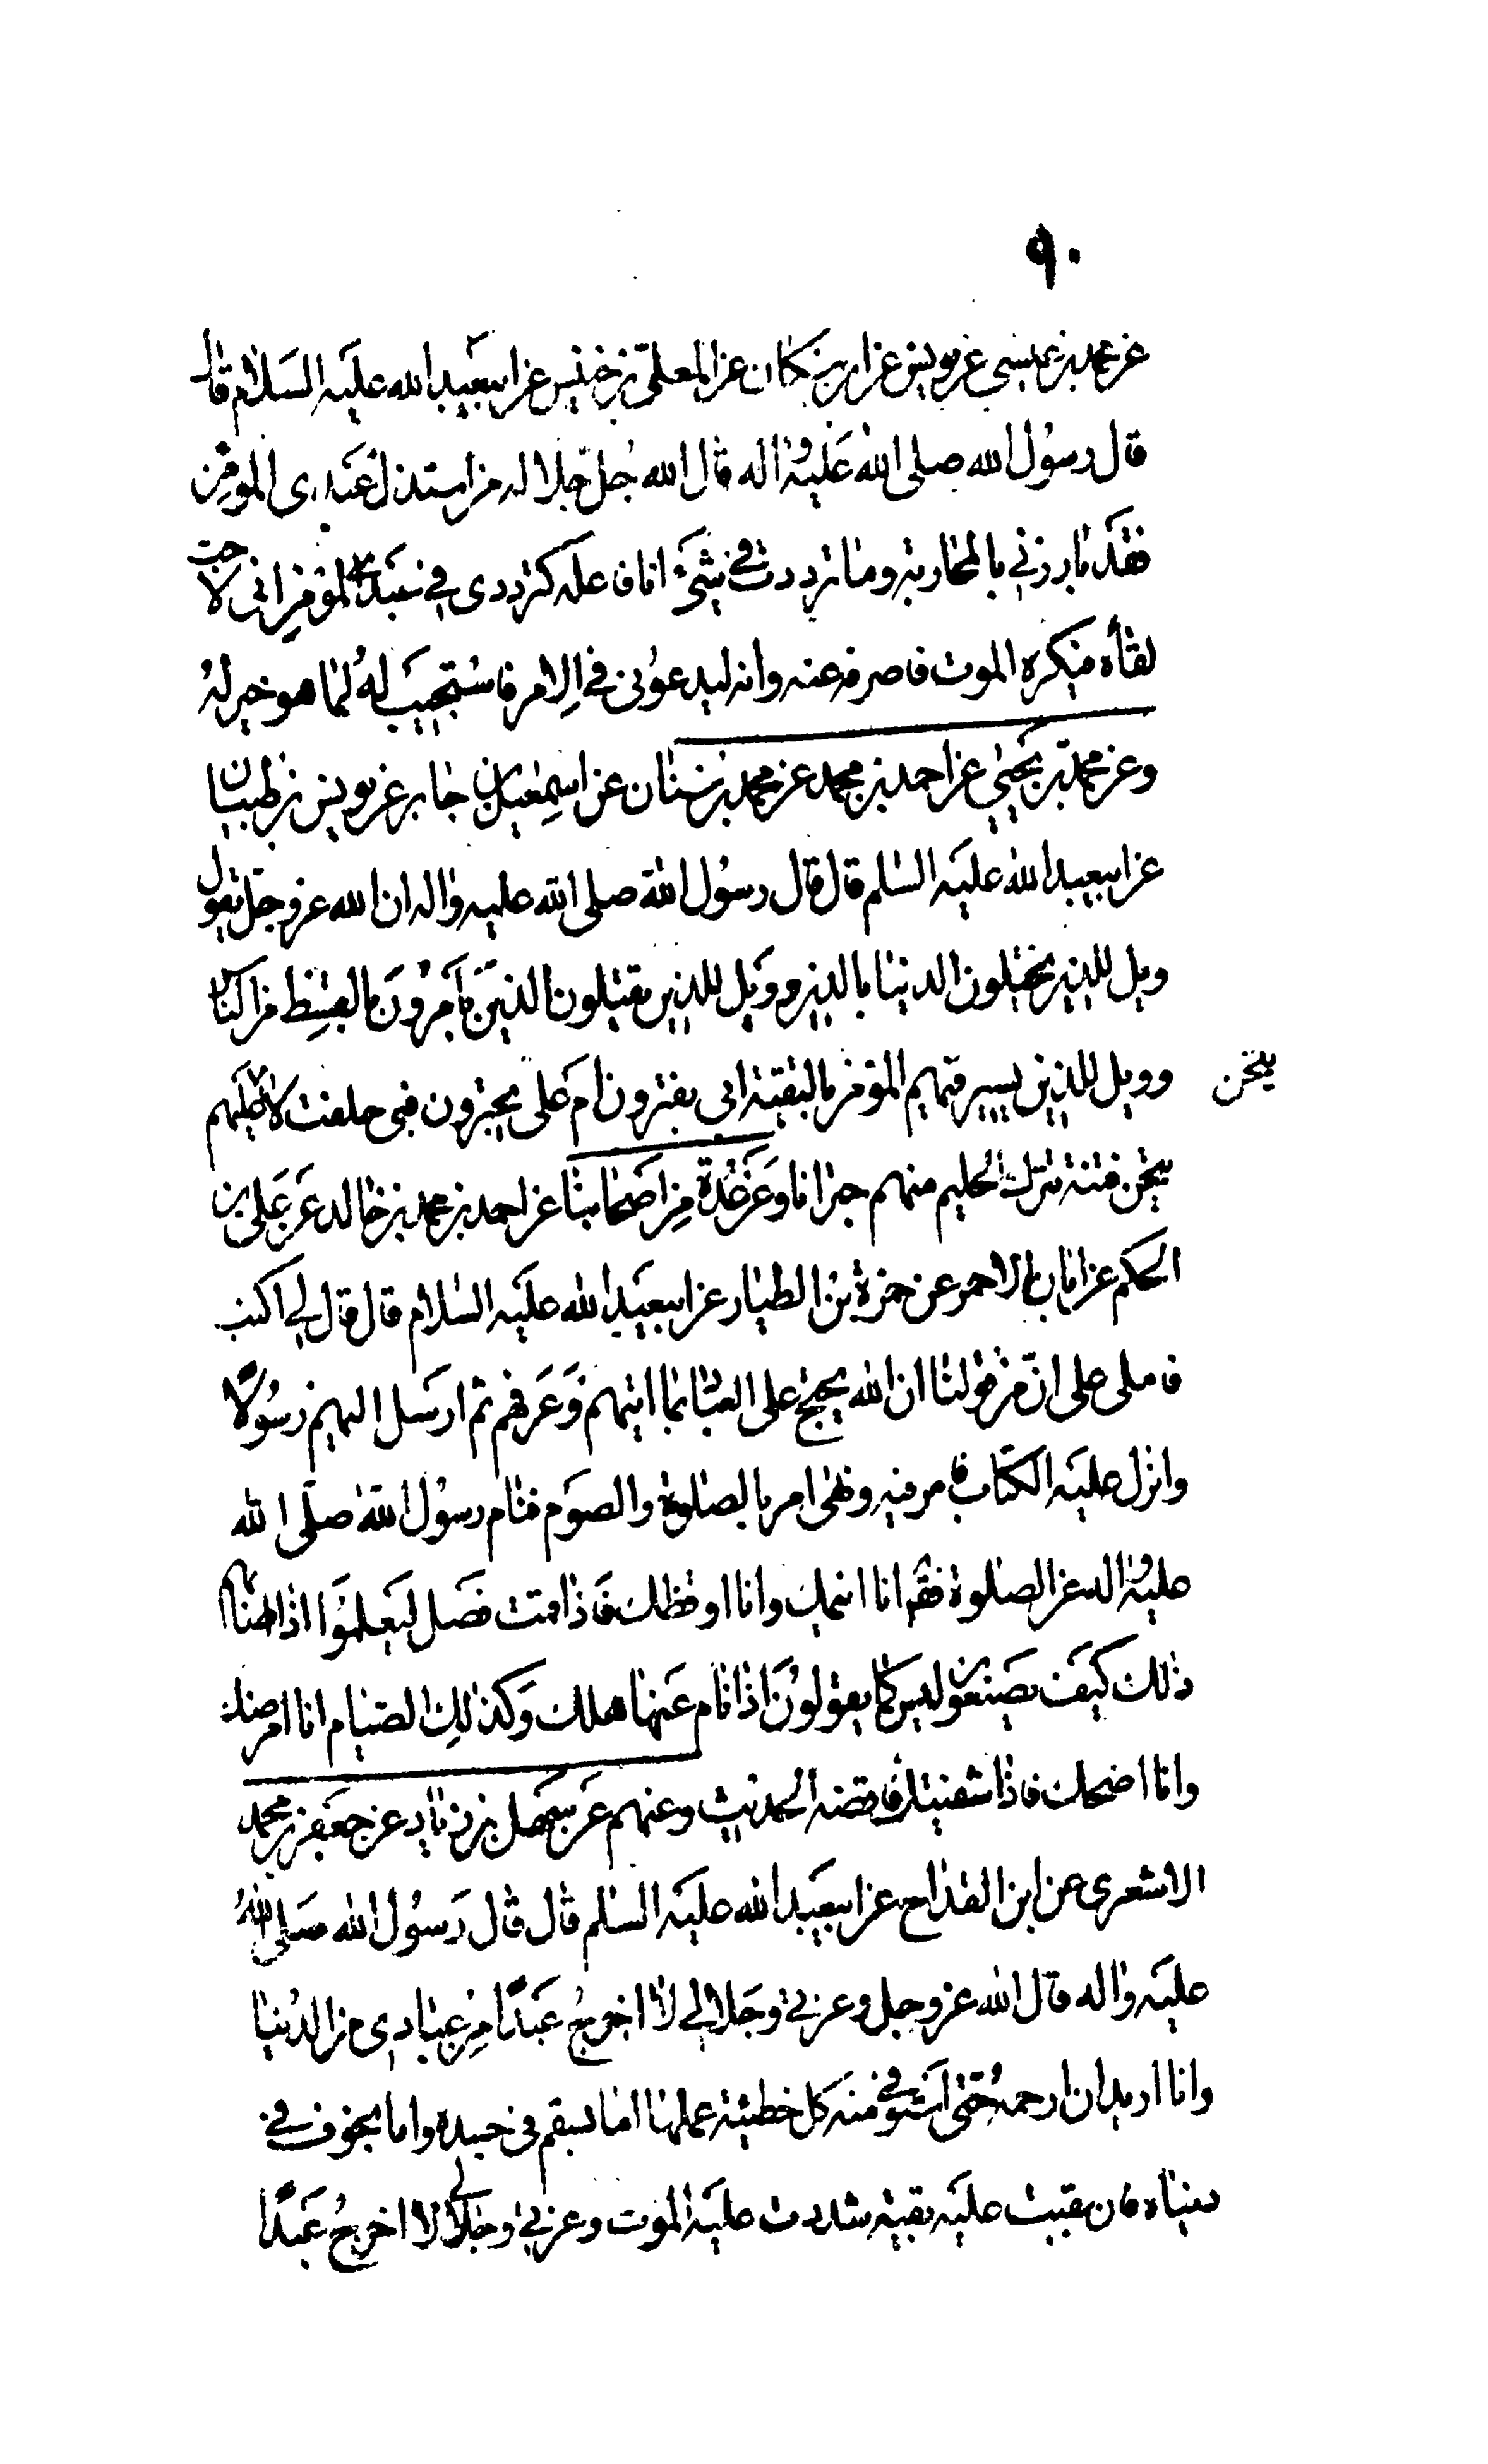 ٩٠
عن محمد بن عيسى عن يونس عن ابن مسكان عن المعلى بن خنيس عن ابيعبد الله عليه السلام قال
قال رسول الله صلى الله عليه واله قال الله جل جلاله من استذل عبدى المومن
فقد بارزني بالمحاربة وما ترددت في شيء انا فاعله كترددى في عبدي المؤمن اني لاحب
لقاه فيكره الموت فاصرفه عنه وانه ليدعوني في الامر فاستجيب له لما هو خير له
وعن محمد بن يحيى عن احمد بن محمد عن محمد بن سنان عن اسمعيل بن جابر عن يونس بن ظبيان
عن ابيعبد الله عليه السلم قال قال رسول الله صلى الله عليه واله ان الله عز وجل يقول
ويل للذين يختلون الدنيا بالدين وويل للذين يقتلون الذين يأمرون بالقسط من الناس
وويل للذين يسير فيهم المؤمن بالتقية ابى يغترون ام على يجترون فبى حلفت لاتيحن لهم
يتحن
فتنة تترك الحليم منهم حيرانا وعن عدة من اصحابنا عن احمد بن محمد بن خالد عن علي بن
الحكم عن ابان الاحمر عن حمزة بن الطيار عن ابيعبد الله عليه السلام قال قال لي اكتب
فاملى على ان من قولنا ان الله يحتج على العباد بما اتيهم وعرفهم ثم ارسل اليهم رسولا
وانزل عليه الكتاب فامر فيه ونهى امر بالصلوة والصوم فنام رسول الله صلى الله
عليه واله عن الصلوة فقال انا انيمك وانا اوقظك فاذا قمت فصل ليعلموا اذا اصابهم
ذلك كيف يصنعون ليس كما يقولون اذا نام عنها هلك وكذلك الصيام انا امرضك
وانا اصحك فاذا شفيتك فاقضه الحديث وعنهم عن سهل بن زياد عن جعفر بن محمد
الاشعرى عن ابن القداح عن ابيعبد الله عليه السلم قال قال رسول الله صلى الله
عليه واله قال الله عز وجل وعزتي وجلالي لا اخرج عبدا من عبادي من الدنيا
وانا اريد ان ارحمه حتى استوفي منه كل خطيئة عملها اما بسقم في جسده واما بخوف في
دنياه فان بقيت عليه بقية شددت عليه الموت وعزتي وجلالي لا اخرج عبدا